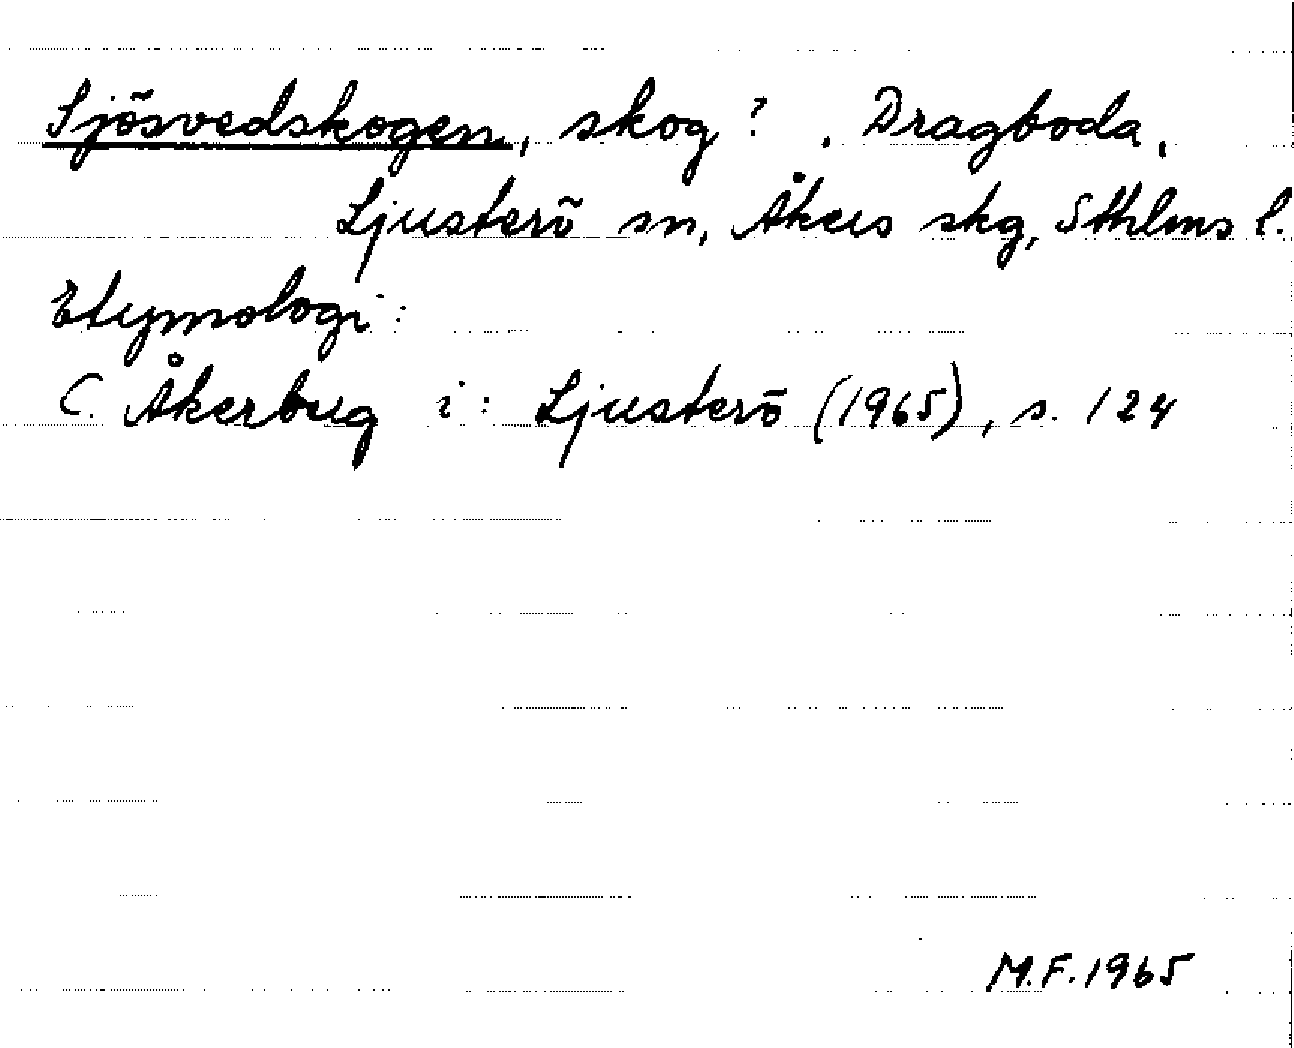 Sjösvedskogen, skog?. Dragboda,
Ljusterö sn, Åkers skg, Sthlms l.
Etymologi:
C. Åkerbug i: Ljusterö (1965), s. 124
M.F. 1965